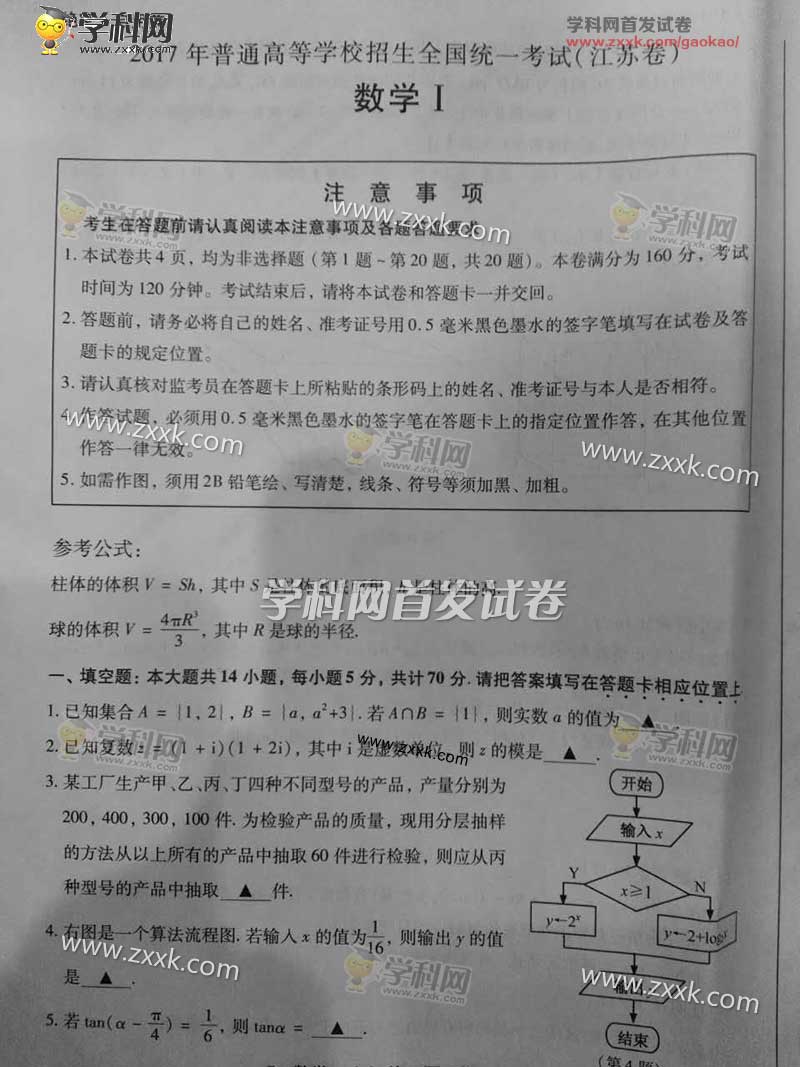 学科网
学科网首发试卷
www.zxxk.com/gaokao/
2017 年普通高等学校招生全国统一考试(江苏卷)
数学 I
注 意 事 项
考生在答题前请认真阅读本注意事项及各题答题要求
1. 本试卷共 4 页, 均为非选择题 (第 1 题 ~ 第 20 题, 共 20 题)。本卷满分为 160 分, 考试
时间为 120 分钟。考试结束后, 请将本试卷和答题卡一并交回。
2. 答题前, 请务必将自己的姓名、准考证号用 0.5 毫米黑色墨水的签字笔填写在试卷及答
题卡的规定位置。
3. 请认真核对监考员在答题卡上所粘贴的条形码上的姓名、准考证号与本人是否相符。
4. 作答试题, 必须用 0.5 毫米黑色墨水的签字笔在答题卡上的指定位置作答, 在其他位置
作答一律无效。
5. 如需作图, 须用 2B 铅笔绘、写清楚, 线条、符号等须加黑、加粗。
参考公式:
柱体的体积 V = Sh, 其中 S
学科网首发试卷
球的体积 V = 4πR³/3, 其中 R 是球的半径.
一、填空题: 本大题共 14 小题, 每小题 5 分, 共计 70 分. 请把答案填写在答题卡相应位置上
1. 已知集合 A = {1, 2}, B = {a, a²+3}. 若 A∩B = {1}, 则实数 a 的值为 ▲
2. 已知复数 z = (1 + i)(1 + 2i), 其中 i 是虚数单位, 则 z 的模是 ▲ .
3. 某工厂生产甲、乙、丙、丁四种不同型号的产品, 产量分别为
200, 400, 300, 100 件. 为检验产品的质量, 现用分层抽样
的方法从以上所有的产品中抽取 60 件进行检验, 则应从丙
种型号的产品中抽取 ▲ 件.
4. 右图是一个算法流程图. 若输入 x 的值为 1/16, 则输出 y 的值
是 ▲ .
5. 若 tan(α - π/4) = 1/6, 则 tanα = ▲ .
开始
输入 x
x≥1
Y
N
y←2ˣ
y←2+log
结束
(第 4 题)
www.zxxk.com